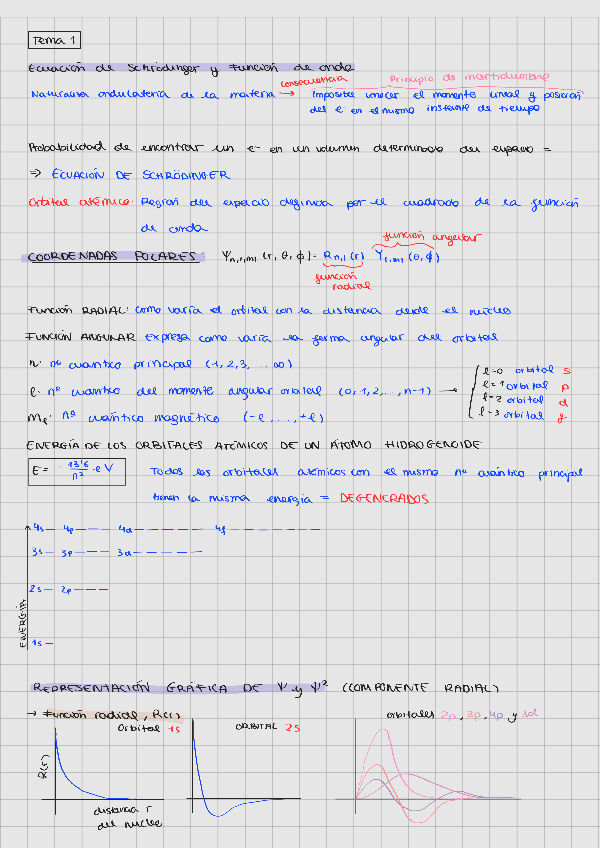 Tema 1
Ecuación de Schrödinger y Función de onda
consecuencia Principio de incertidumbre
Naturaleza ondulatoria de la materia → Imposible conocer el momento lineal y posición
del e- en el mismo instante de tiempo
Probabilidad de encontrar un e- en un volumen determinado del espacio =
=> ECUACIÓN DE SCHRÖDINGER
Orbital atómico: Región del espacio definida por el cuadrado de la función
de onda
función angular
COORDENADAS POLARES: Ψn,l,ml (r, θ, ϕ) = Rn,l (r) Yl,ml (θ, ϕ)
función
radial
Función RADIAL: como varía el orbital con la distancia desde el núcleo
FUNCIÓN ANGULAR Expresa como varía la forma angular del orbital
n: nº cuántico principal (1,2,3, ... ∞)
l=0 orbital s
ℓ: nº cuántico del momento angular orbital (0,1,2,..., n-1) → l=1 orbital p
l=2 orbital d
mℓ: nº cuántico magnético (-ℓ,...,+ℓ) l=3 orbital f
ENERGÍA DE LOS ORBITALES ATÓMICOS DE UN ÁTOMO HIDROGENOIDE
E = - 13'6 / n² · eV Todos los orbitales atómicos con el mismo nº cuántico principal
tienen la misma energía = DEGENERADOS
4s 4p 4d 4f
3s 3p 3d
2s 2p
1s
ENERGÍA
REPRESENTACIÓN GRÁFICA DE Ψ y Ψ² (COMPONENTE RADIAL)
→ Función radial, R(r) orbitales 2p, 3p, 4p y 3d
Orbital 1s ORBITAL 2s
R(r)
distancia r
del núcleo